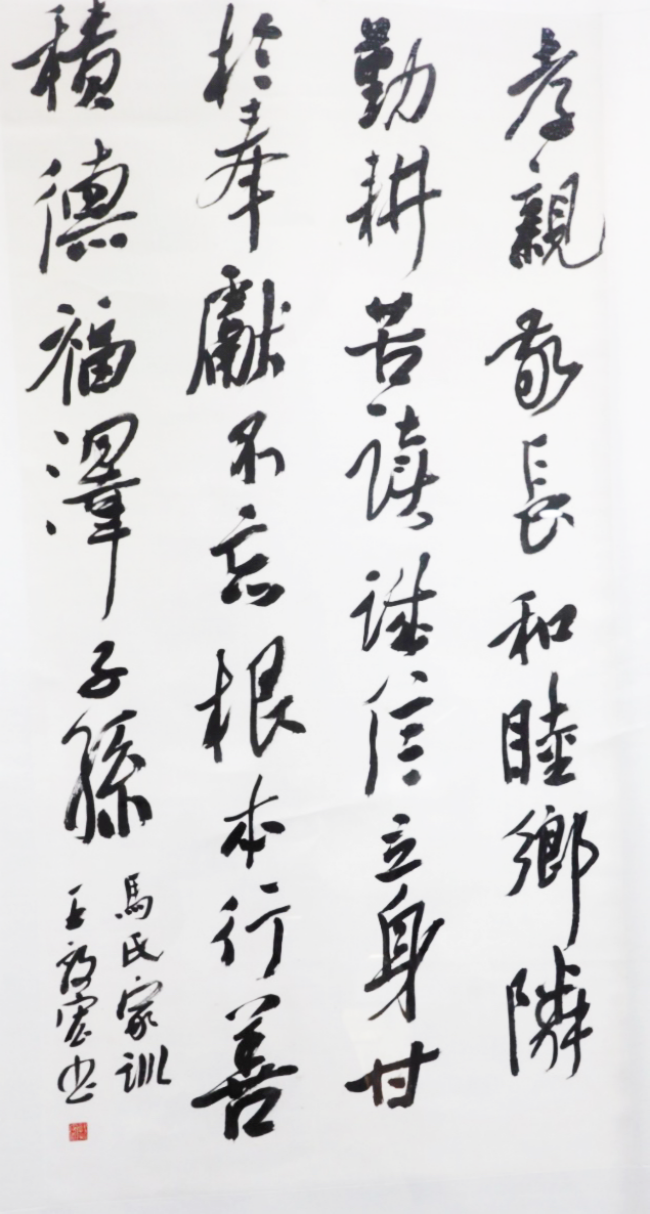 孝親敬長和睦鄉隣
勤耕苦讀誠信立身甘
於奉獻不忘根本行善
積德福澤子孫
馬氏家訓
王
書